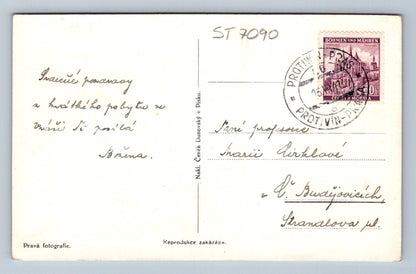 ST 7090
BÖHMEN UND MÄHREN
PROTIVÍN-PRAHA
PROTIVÍN-PRAHA
Srdečné pozdravy
z krátkého pobytu ve
Ti posílá
Božena.
Nakl. Čeněk Danovský v Písku.
Paní profesor
Marii Cirklové
Č. Budějovicích,
Strandlova pl.
Pravá fotografie.
Reprodukce zakázána.